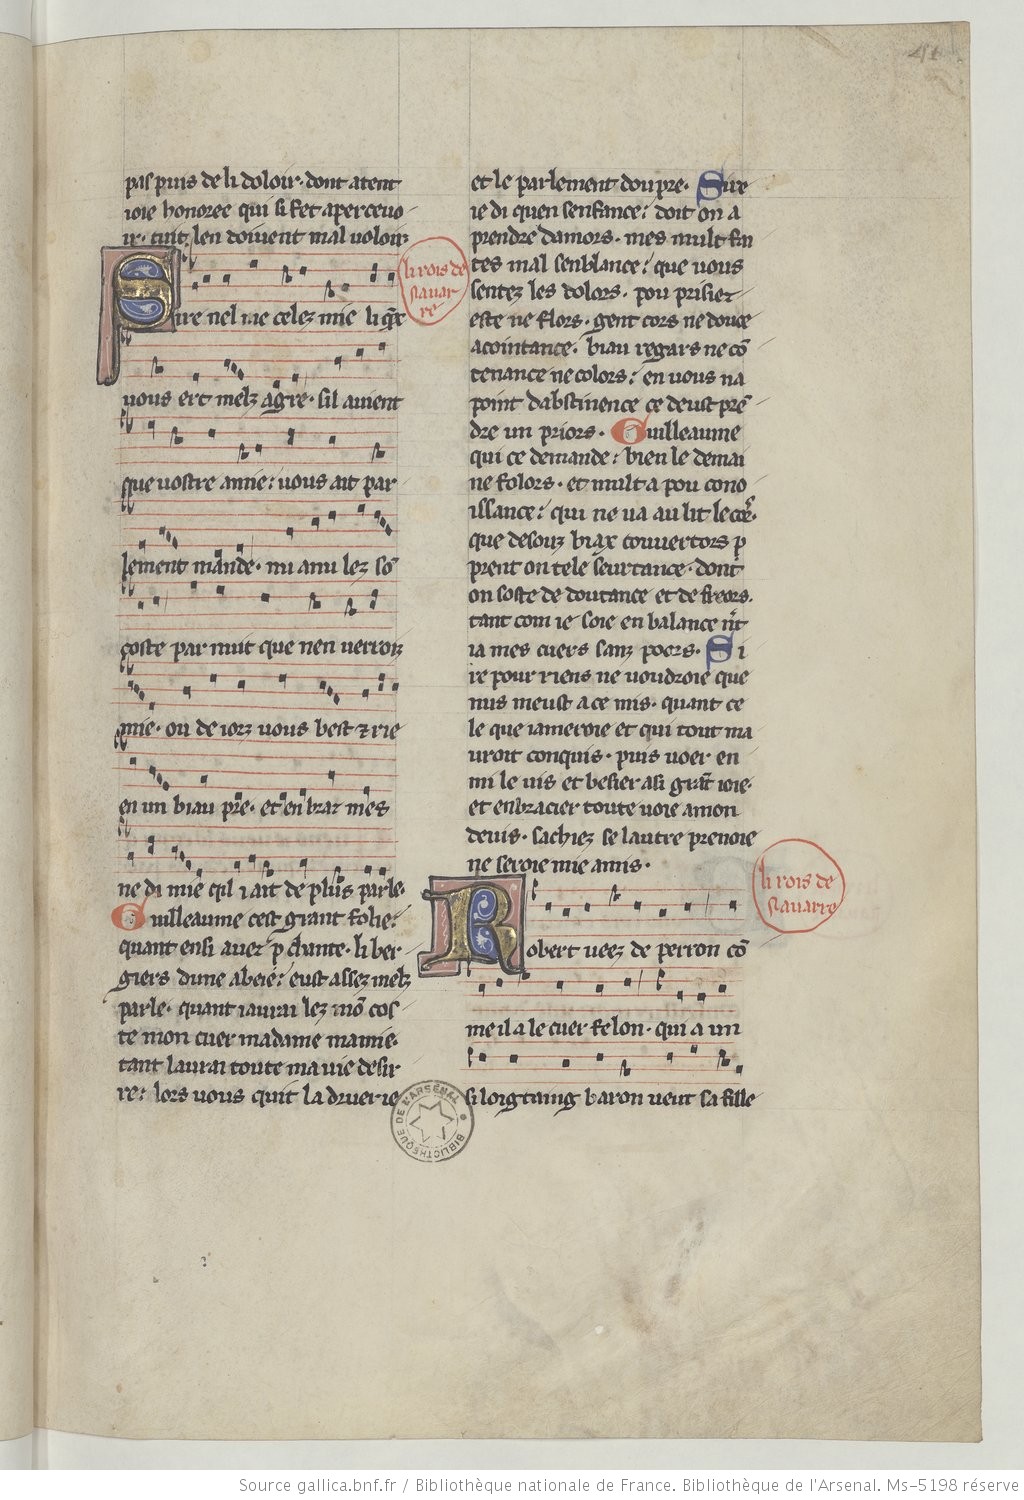 41
pas puis de li doloir· dont atent
ioie honoree qui si fet aperceuo
ir· tuit len doiuent mal voloir
li rois de
nauar
re
Sire nel me celez mie li q̃e
vous ert melz agre· sil auient
que vostre amie: vous ait par
lement mande· nu a nu lez sõ
coste par nuit que nen verroiz
mie· ou de iorz vous best ⁊ rie
en un biau pre· et enbraz mes
ne di mie qil i ait de plus parle·
Guilleaume cest grant folie:
quant ensi auez p̱ chante· li ber
giers dune abeie: eust assez melz
parle· quant iaurai lez mõ cos
te mon cuer madame mamie·
tant laurai toute ma vie desir
re: lors vous quit la druerie
et le parlement dou pre· Sire
ie di quen senfance: doit on a
prendre damors· mes mult fai
tes mal senblance: que vous
sentez les dolors· pou prisiez
este ne flors· gent cors ne douce
acointance· biau regars ne cõ
tenance ne colors: en vous na
point dabstinence ce deust prẽ
dre un priors· Guilleaume
qui ce demande: bien le demai
ne folors· et mult a pou cono
issance: qui ne va au lit le
que desouz biax couuertors p̱
prent on tele seurtance· dont
on soste de doutance et de freors·
tant com ie soie en balance
ia mes cuers sanz poors· Si
re pour riens ne voudroie que
nus meust a ce mis· quant ce
le que iameroie et qui tout ma
uroit conquis· puis voer en
mi le vis et besier a si grãt ioie·
et enbracier toute voie a mon
deuis· sachiez se lautre prenoie
ne seroie mie amis·
li rois de
nauarre
Robert veez de perron cõ
me il a le cuer felon· qui a un
si loigtaing baron veut sa fille
BIBLIOTHEQUE DE L'ARSENAL
Source gallica.bnf.fr / Bibliothèque nationale de France. Bibliothèque de l'Arsenal. Ms-5198 réserve